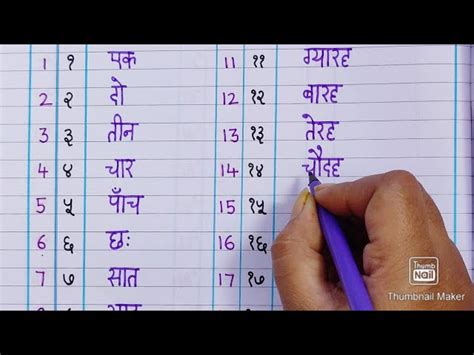 1 १ एक 11 ११ ग्यारह
2 २ दो 12 १२ बारह
3 ३ तीन 13 १३ तेरह
4 ४ चार 14 १४ चौदह
5 ५ पाँच 15 १५
6 ६ छः 16 १६
7 ७ सात 17 १७
Thumb
Nail
Thumbnail Maker